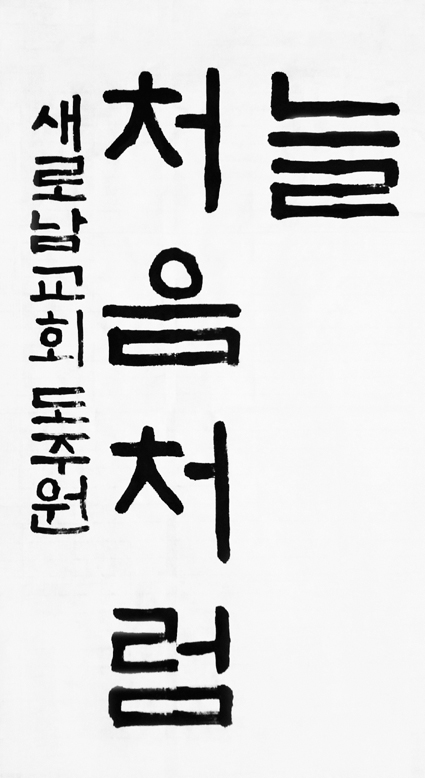 늘
처음처럼
새로남교회 도주원